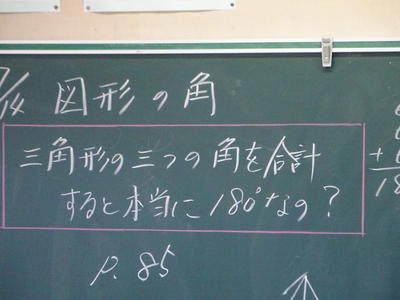 図形の角
三角形の三つの角を合計
すると本当に180°なの？
P. 85